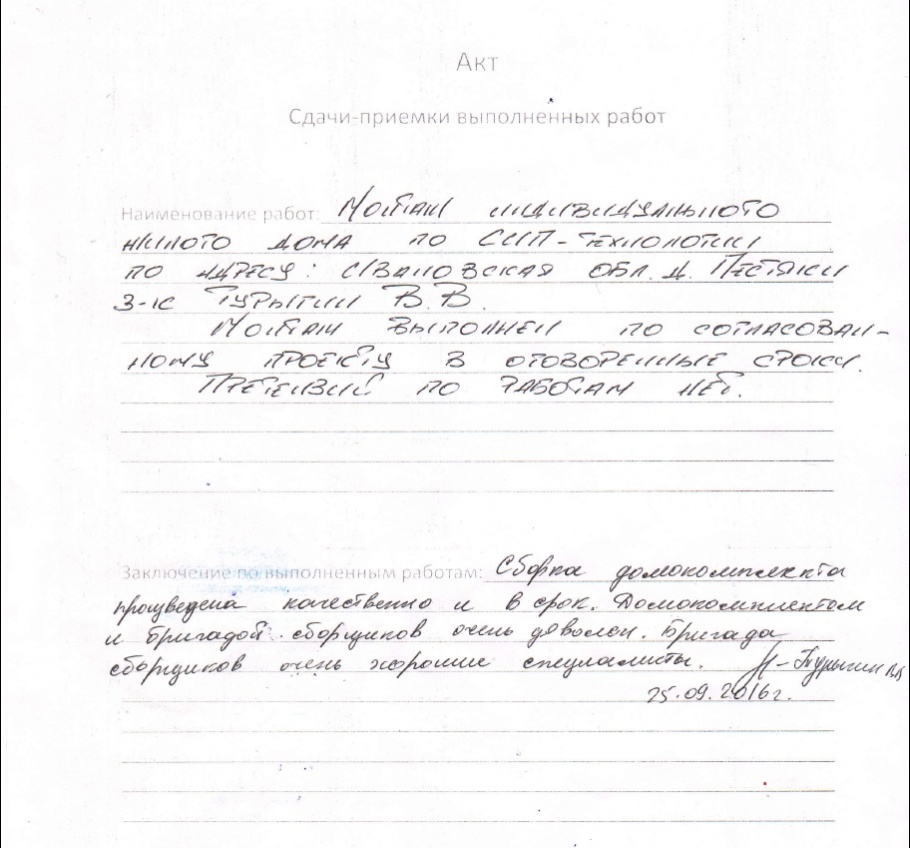 Акт
Сдачи-приемки выполненных работ
Наименование работ: Монтаж индивидуального
жилого дома по СИП-технологии
по адресу: Ивановская обл. д. Пестяки
з-к Турыгин В.В.
Монтаж выполнен по согласован-
ному проекту в оговоренные сроки.
Претензий по работам нет.
Заключение по выполненным работам: Сборка домокомплекта
произведена качественно и в срок. Домокомплектом
и бригадой сборщиков очень доволен. Бригада
сборщиков очень хорошие специалисты. Турыгин ВВ
25.09.2016г.